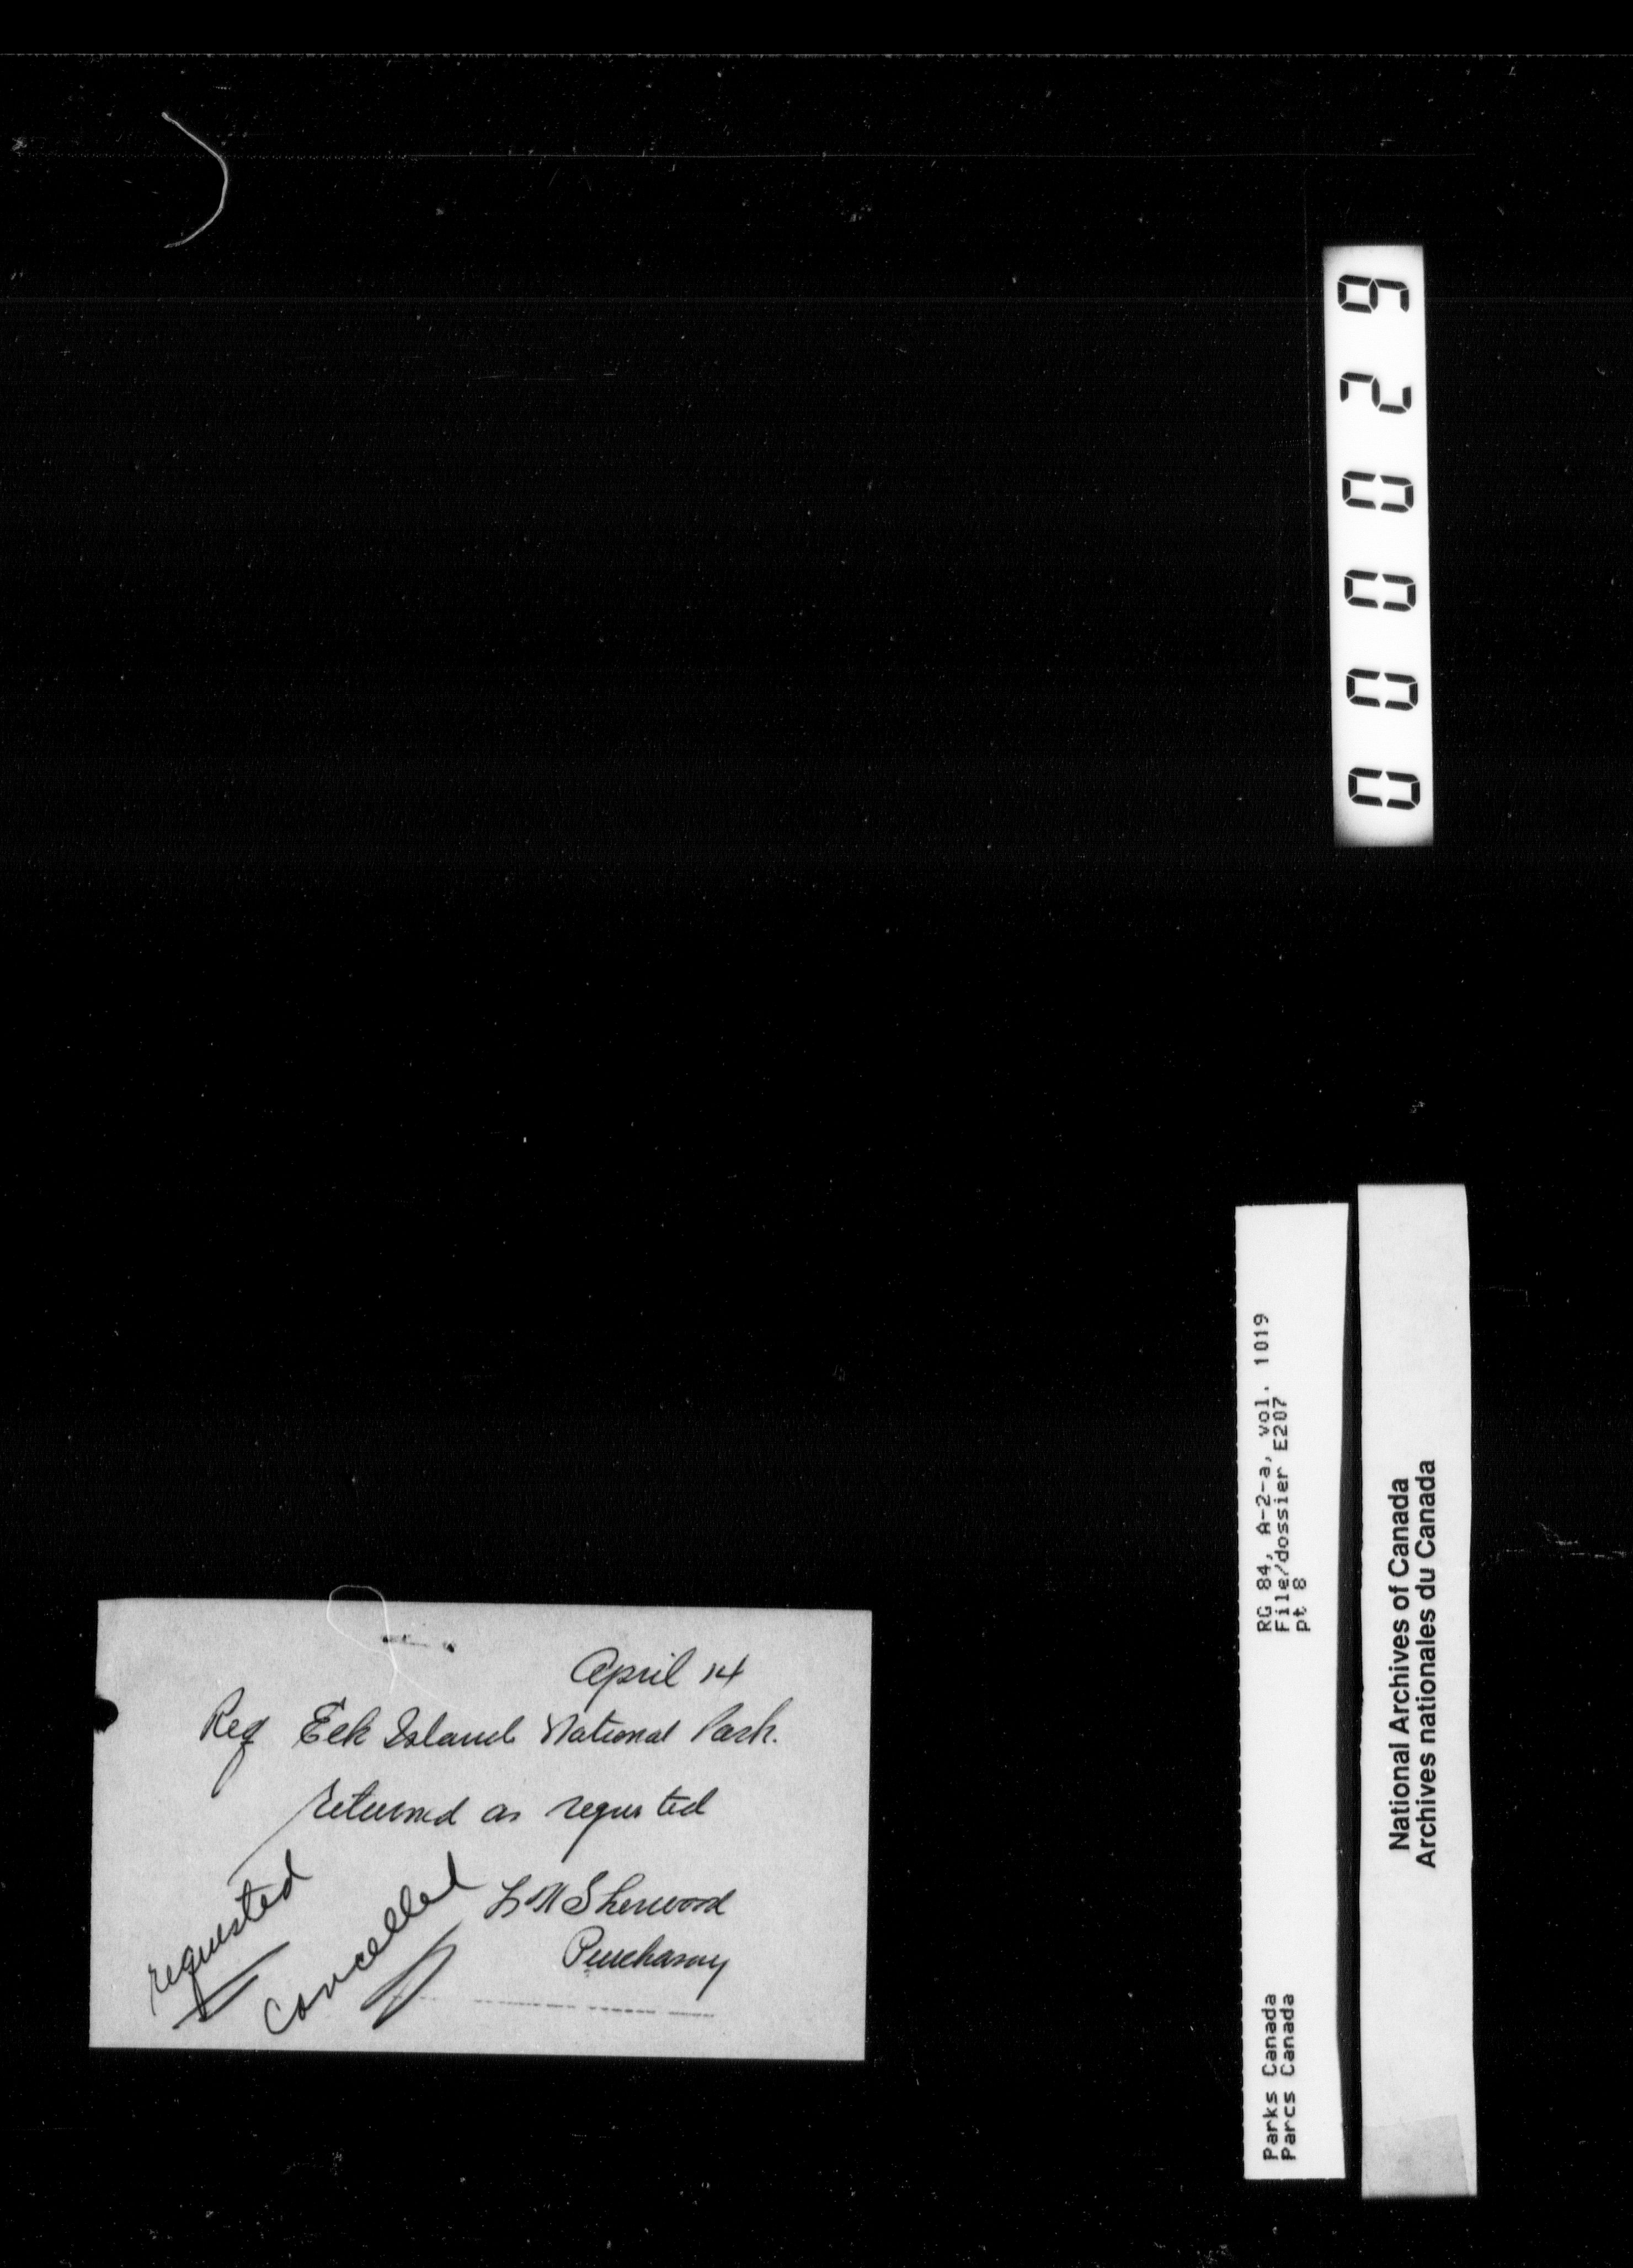 000029
RG 84, A-2-a, vol. 1019
File/dossier E207
pt 8
Parks Canada
Parcs Canada
National Archives of Canada
Archives nationales du Canada
April 14
Req Eek Island National Park.
returned as requested
Sherwood
Purchasing
requested
cancelled